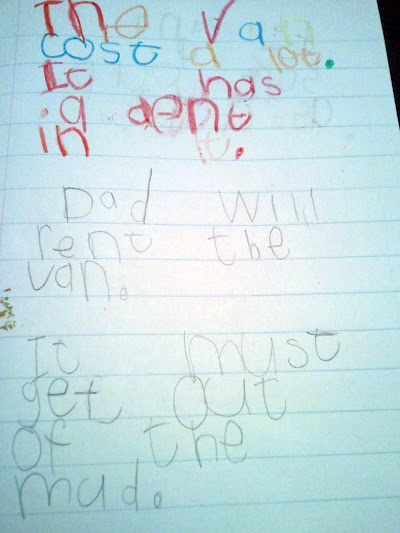 The Van
cost a lot.
It has
a dent
in it.
Dad will
rent the
van.
It must
get out
of the
mud.